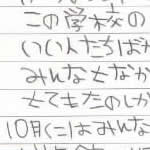 この学校の
いい人たちばか
みんなとなか
もてきたのしか
10月にはみんな